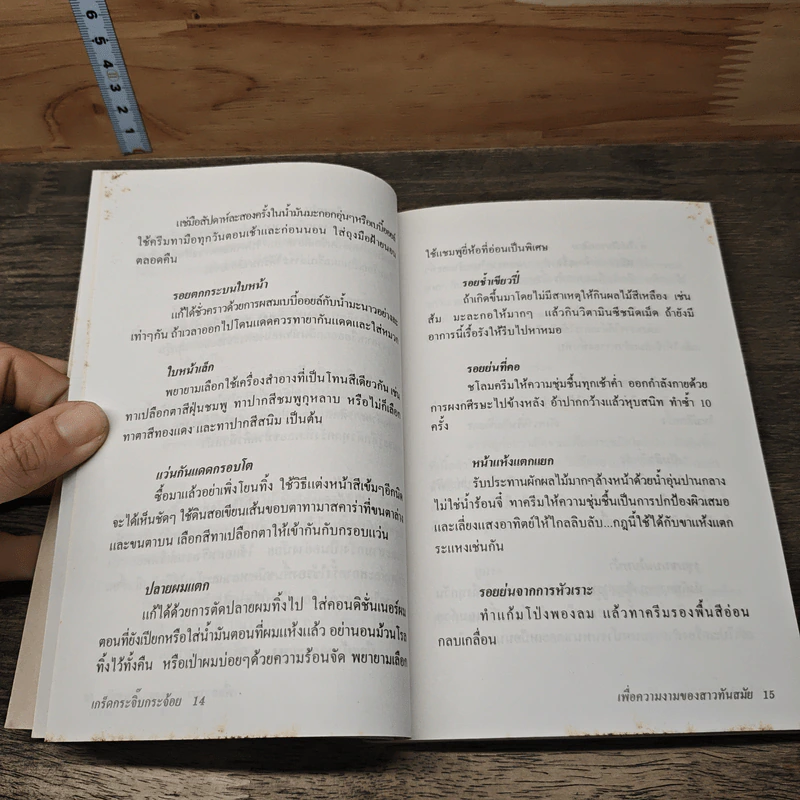 6 5 4 3 2 1
แช่มือสัปดาห์ละสองครั้งในน้ำมันมะกอกอุ่นๆหรือเบบี้ออยล์
ใช้ครีมทามือทุกวันตอนเช้าและก่อนนอน ใส่ถุงมือผ้ายนอน
ตลอดคืน
รอยตกกระบนใบหน้า
แก้ได้ชั่วคราวด้วยการผสมเบบี้ออยล์กับน้ำมะนาวอย่างละ
เท่าๆกัน ถ้าเวลาออกไปโดนแดดควรทายากันแดดและใส่หมวก
ใบหน้าเล็ก
พยายามเลือกใช้เครื่องสำอางที่เป็นโทนสีเดียวกัน เช่น
ทาเปลือกตาสีฝุ่นชมพู ทาปากสีชมพูกุหลาบ หรือไม่ก็เลือก
ทาตาสีทองแดง และทาปากสีสนิม เป็นต้น
แว่นกันแดดกรอบโต
ซื้อมาแล้วอย่าเพิ่งโยนทิ้ง ใช้วิธีแต่งหน้าสีเข้มๆอีกนิด
จะได้เห็นชัดๆ ใช้ดินสอเขียนเส้นขอบตาทามาสคาร่าที่ขนตาล่าง
และขนตาบน เลือกสีทาเปลือกตาให้เข้ากันกับกรอบแว่น
ปลายผมแตก
แก้ได้ด้วยการตัดปลายผมทิ้งไป ใส่คอนดิชั่นเนอร์ผม
ตอนที่ยังเปียกหรือใส่น้ำมันตอนที่ผมแห้งแล้ว อย่านอนม้วนโรล
ทิ้งไว้ทั้งคืน หรือเป่าผมบ่อยๆด้วยความร้อนจัด พยายามเลือก
เกร็ดกระจิ๊บกระจ้อย 14
ใช้แชมพูยี่ห้อที่อ่อนเป็นพิเศษ
รอยช้ำเขียวปี๋
ถ้าเกิดขึ้นมาโดยไม่มีสาเหตุให้กินผลไม้สีเหลือง เช่น
ส้ม มะละกอให้มากๆ แล้วกินวิตามินซีชนิดเม็ด ถ้ายังมี
อาการนี้เรื้อรังให้รีบไปหาหมอ
รอยย่นที่คอ
ชโลมครีมให้ความชุ่มชื้นทุกเช้าค่ำ ออกกำลังกายด้วย
การผงกศีรษะไปข้างหลัง อ้าปากกว้างแล้วหุบสนิท ทำซ้ำ 10
ครั้ง
หน้าแห้งแตกแยก
รับประทานผักผลไม้มากๆล้างหน้าด้วยน้ำอุ่นปานกลาง
ไม่ใช่น้ำร้อนจี๋ ทาครีมให้ความชุ่มชื้นเป็นการปกป้องผิวเสมอ
และเลี่ยงแสงอาทิตย์ให้ไกลลิบลับ...กฎนี้ใช้ได้กับขาแห้งแตก
ระแหงเช่นกัน
รอยย่นจากการหัวเราะ
ทำแก้มโป่งพองลม แล้วทาครีมรองพื้นสีอ่อน
กลบเกลื่อน
เพื่อความงามของสาวทันสมัย 15